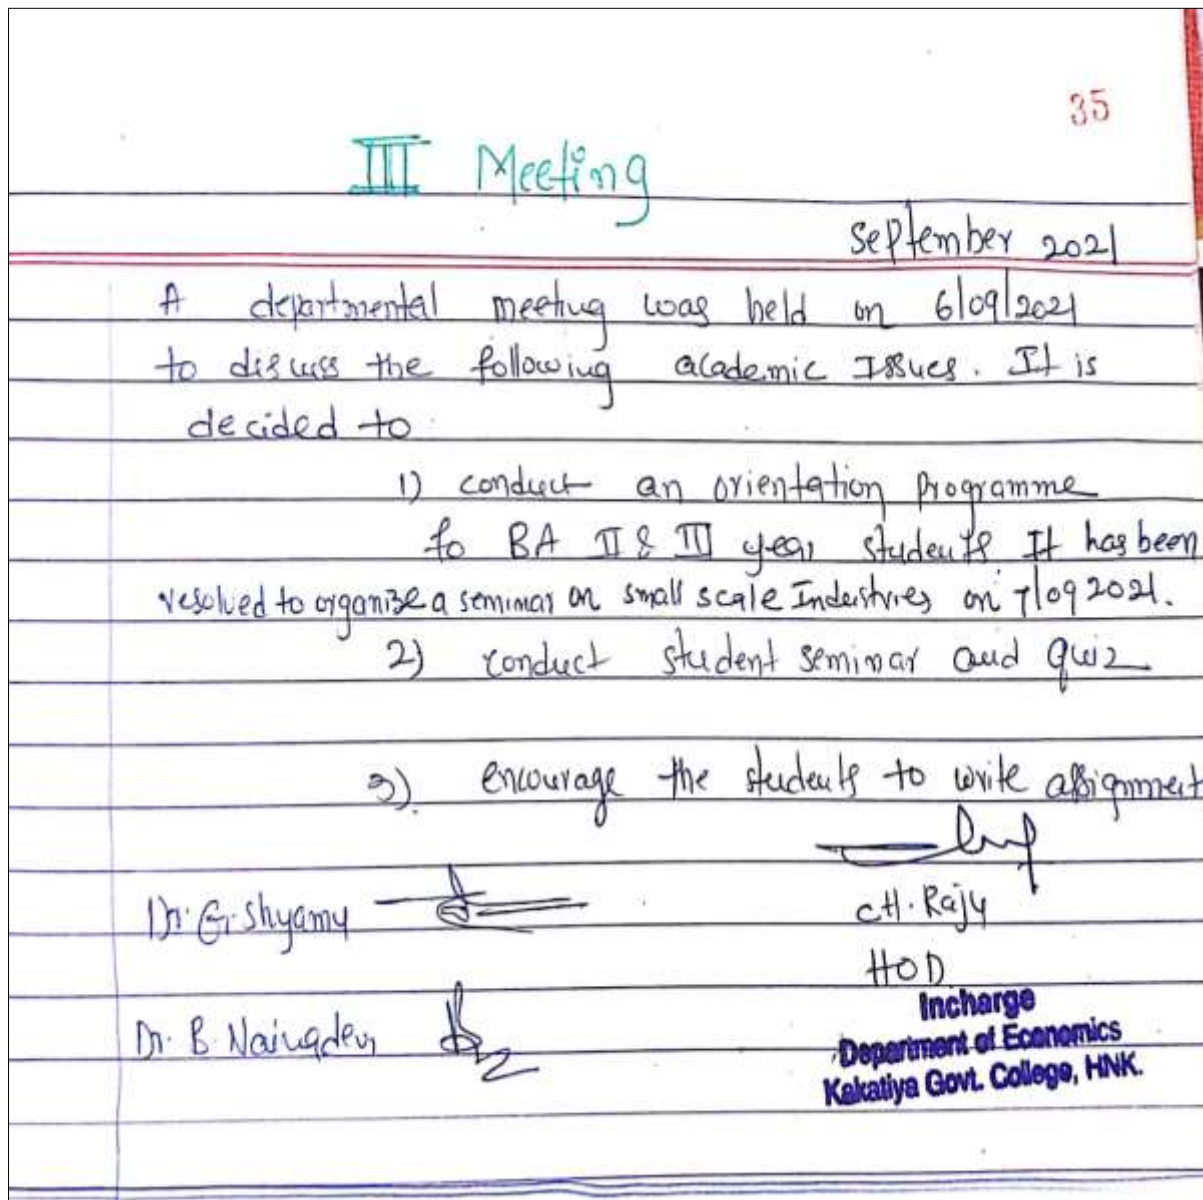 35
III Meeting
September 2021
A departmental meeting was held on 6/09/2021
to discuss the following academic Issues. It is
decided to
1) conduct an orientation programme
to BA II & III year students It has been
resolved to organize a seminar on small scale Industries on 7/09 2021.
2) conduct student seminar and quiz
3). encourage the students to write assignment
CH. Raju
Dr. G. Shyamu
HOD
Incharge
Dr. B.
Department of Economics
Kakatiya Govt. College, HNK.